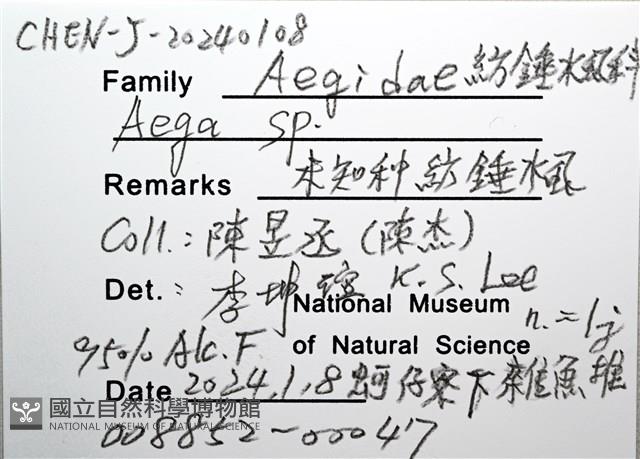 CHEN-J-20240108
Family Aegidae 紡錘水蝨科
Aega sp.
Remarks 未知种紡錘水蝨
Coll.: 陳昱丞 (陳杰)
Det.: 李坤瑄 K. S. Lee
National Museum n.=1j
of Natural Science
95% Alc. F.
Date 2024.1.8 蚵仔寮下雜魚堆
國立自然科學博物館
NATIONAL MUSEUM OF NATURAL SCIENCE
008852-00047